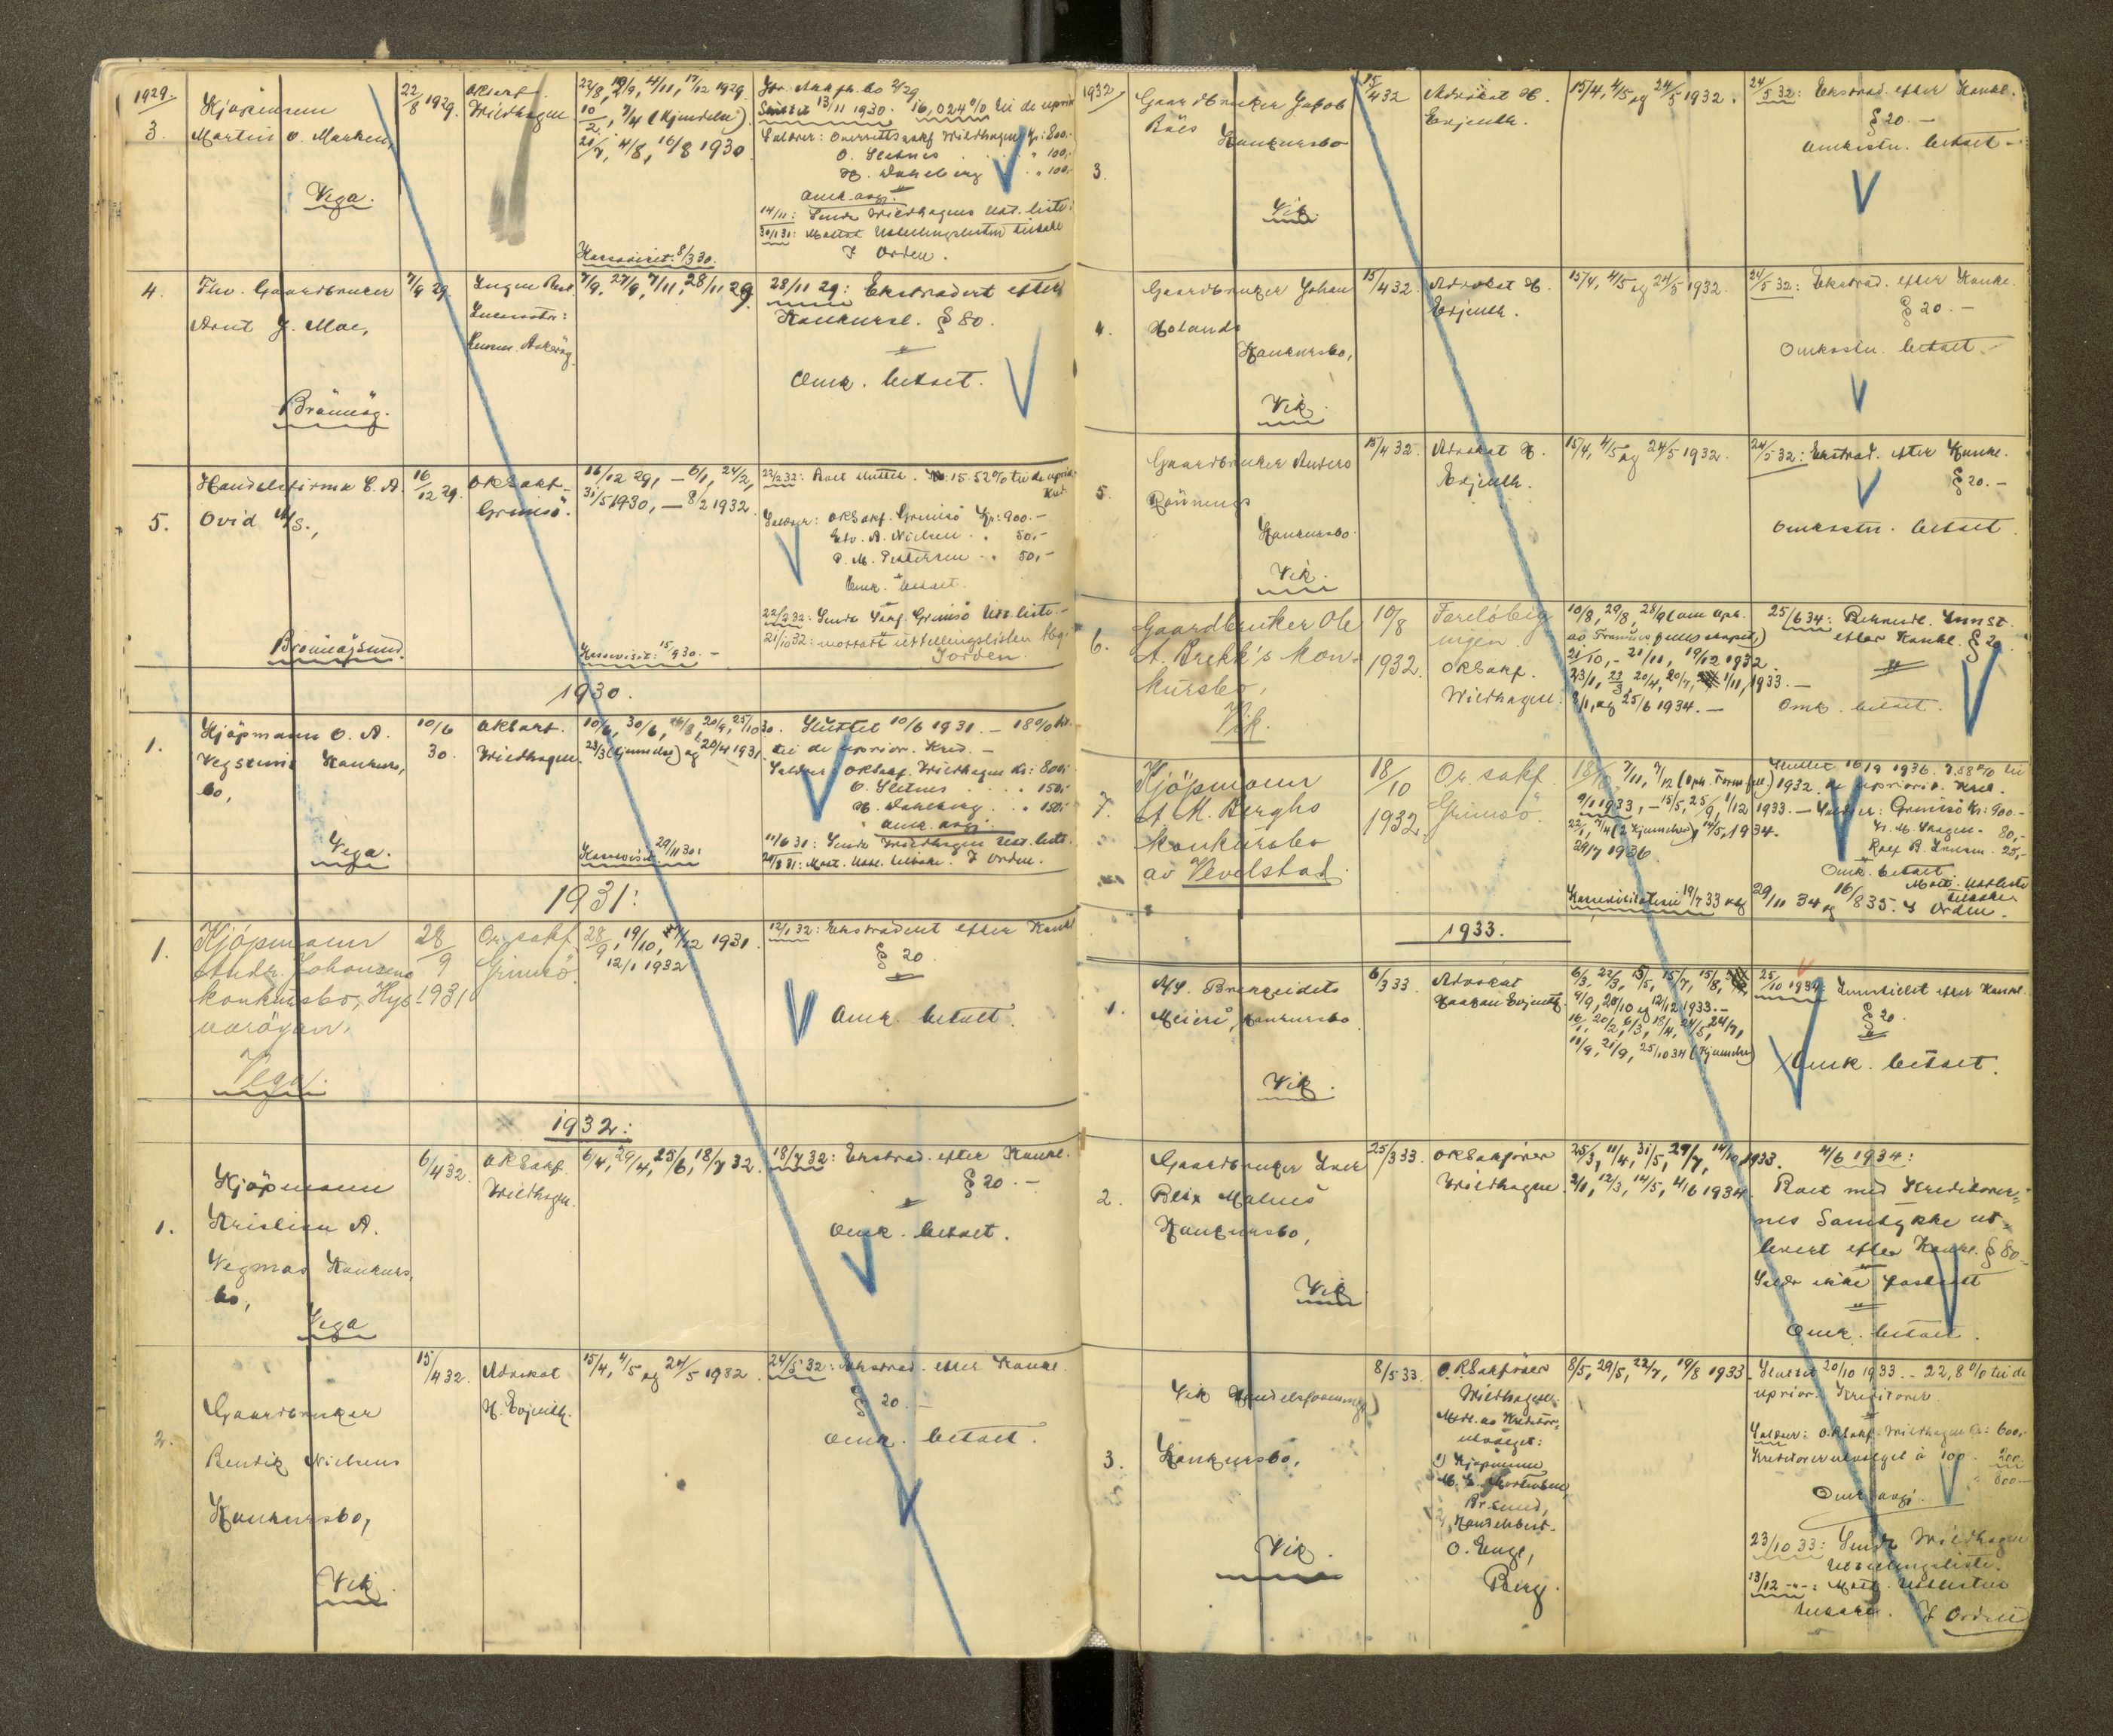 1929.
3.
Kjøpmann
Martin O. Markens,
Vega.
22/8 1929.
ORsakf.
Wildhagen
22/8, 19/9, 4/11, 17/12 1929.
10/2, 7/4 (Kjendelse)
21/7, 4/8, 16/8 1930
Kassavisit. 8/3 30.
Sluttet 13/11 1930. 16,024% til de uprior
Salærer: Overrettssakf. Wildhagen Kr: 800.-
O. Sletnes " 100,-
H. Dahlberg " 100,-
Omk. avgj.
14/11: Sendt Wildhagens Utd. liste.
30/1 31: Mottat Utdelingslisten tilbake
I Orden.
4.
Fhv. Gaardbruker
Arnt J. Moe,
Brönnöy.
7/9 29.
Ingen Best.
7/9, 27/9, 7/11, 28/11 29.
28/11 29: Ekstradert efter
Konkursl. § 80.
Omk. betalt.
5.
Handelsfirma C. A.
Ovid A/S.,
Brönnöysund.
16/12 29.
ORsakf.
Grimsö.
16/12 29, – 6/1, 24/2,
31/5 1930, – 8/2 1932
Kassavisit: 15/9 30. –
22/2 32: Boet sluttet. 15.52% til de uprior.
Kred.
Salærer: ORsakf. Grimsö Kr: 900.-
Edv. A. Nielsen . " 50,-
P. M. Pettersen . " 50,-
Omk. betalt.
22/2 32: Sendt Sakf. Grimsö Utd. liste. –
21/10 32: mottatt utdelingslisten tbg.
I orden
1930.
1.
Kjöpmann O. A.
Vegsteins Konkurs,
bo,
Vega.
10/6
30.
ORsakf.
Wildhagen.
10/6, 30/6, 16/8, 20/9, 25/10 30.
23/3 (Kjennelse) og 20/4 1931.
Kassavisit. 29/11 30:
Sluttet 10/6 1931. – 18%
til de uprior. Kred. –
Salær: ORsakf. Wildhagen Kr: 800.-
O. Sletnes . . . . 150.-
H. Dahlberg . . . 150.-
Omk. avgj.
11/6 31: Sendt Wildhagen Utd. liste.
Mott. Utdl. tilbake. I Orden.
1931:
1.
Kjöpmann
Andr. Johansens
konkursbo, Hys-
værøyan,
Vega.
28/9
1931
Or. sakf.
Grimsö.
28/9, 19/10, 12 1931.
12/1 1932
12/1 32: Ekstradert efter Konkl.
§ 20.
Omk. betalt.
1932:
1.
Kjöpmann
Kristian A.
Vegmas Konkurs,
bo,
Vega
6/4 32.
ORSakf.
Wildhagen.
6/4, 29/4, 25/6, 18/7 32.
18/7 32: Ekstrad. efter Konkl.
§ 20. –
Omk. betalt.
2.
Gaardbruker
Bentik Nielsens
Konkursbo,
Vik.
15/4 32.
Advokat
H. Evjenth.
15/4, 4/5 og 24/5 1932.
24/5 32: Ekstrad. efter Konkl.
§ 20. –
Omk. betalt.
1932,
3.
Gaardbruker Jakob
Böes
Konkursbo
Vik.
15/4 32
Advokat H.
Evjenth.
15/4, 4/5 og 24/5 1932.
24/5 32: Ekstrad. efter Konkl.
§ 20. –
Omkostn. betalt –
4.
Gaardbruker Johan
Holands
Konkursbo,
Vik.
15/4 32.
Advokat H.
Evjenth.
15/4, 4/5 og 24/5 1932.
24/5 32: Ekstrad. efter Konkl.
§ 20. –
Omkostn. betalt. –
5.
Gaardbruker Anders
Rönnings
Konkursbo
Vik.
15/4 32.
Advokat H.
Evjenth.
15/4, 4/5 og 24/5 1932.
24/5 32: Ekstrad. efter Konkl.
§ 20. –
Omkostn. betalt.
6.
Gaardbruker Ole
A. Brekk's kon-
kursbo,
Vik.
10/8
1932.
Foreløbig
ingen.
ORSakf.
Wildhagen.
10/8, 29/8, 28/9 (om oph.
av Framnes fellesskapet,)
21/10, – 21/11, 19/12 1932.
23/1, 23/3, 20/4, 20/7, 1/11, 1933. –
8/1, og 25/6 1934. –
25/6 34: Behandl. Innst.
efter Konkl. § 20
Omk. betalt.
7.
Kjöpmann
A. M. Berghs
konkursbo
av Vevelstad.
18/10
1932.
Or. sakf.
Grimsö.
18/10, 7/11, 7/12 1932.
9/1 1933, – 15/5, 25/9, 1/12 1933. –
1934.
24/7 1936.
Kassavisitation 19/7 33 og 29/11 34 og 16/8 35. I Orden.
Sluttet 16/9 1936. 7.58% til
de uprior. Kred.
Salær: Grimsö Kr: 900.-
80,-
25,-
Omk. betalt.
Mott. Utd. liste
tilbake.
1933.
1.
A/L Brekkeidets
Meieri, Konkursbo
Vik.
6/3 33.
Advokat
Haakon Evjenth.
6/3, 22/3, 15/5, 15/7, 15/8,
9/9, 20/10 og 12/12 1933. –
16/1, 20/2, 6/3, 18/4, 24/5, 24/7,
11/9, 21/9, 25/10 34 (Kjennelse)
25/10 1934 Innstillet efter Konkl.
§ 20.
Omk. betalt.
2.
Gaardbruker Iver
Blix Malmös
Konkursbo,
Vik
25/3 33.
ORSakförer
Wildhagen.
25/3, 11/4, 31/5, 29/7, 14/10 1933.
2/1, 12/3, 14/5, 4/6 1934.
4/6 1934:
Boet med Kreditorer-
nes Samtykke ut-
levert efter Konkl. § 80
Salær ikke fastsatt
Omk. betalt.
3.
Vik Handelsforenings
Konkursbo,
Vik.
8/5 33.
O.RSakförer
Wildhagen.
Medl. av Kreditor,
utvalget:
1) Kjøpmann
M. E. Mortensen,
Br.sund,
2, Handelsbest.
O. Enge,
Berg.
8/5, 29/5, 22/7, 19/8 1933.
Sluttet 20/10 1933. – 22,8% til de
uprior. Kreditorer.
Salærer: ORSakf. Wildhagen Kr: 600,-
Kreditorerutvalget á 100. 200
800.-
Omk. avgj.
23/10 33: Sendt Wildhagen
Utdelingsliste.
13/12 -"-: Mott. Utdlisten
tilbake. I Orden